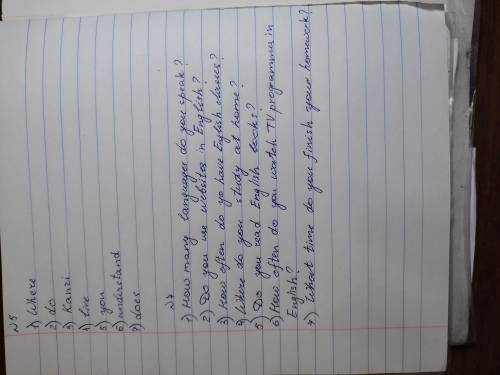 №5
1) Where
2) do
3) Kanzi
4) live
5) you
6) understand
7) does
№7
1) How many languages do you speak?
2) Do you use websites in English?
3) How often do yo have English classes?
4) Where do you study at home?
5) Do you read English books?
6) How often do you watch TV programmes in
English?
7) What time do you finish your homework?